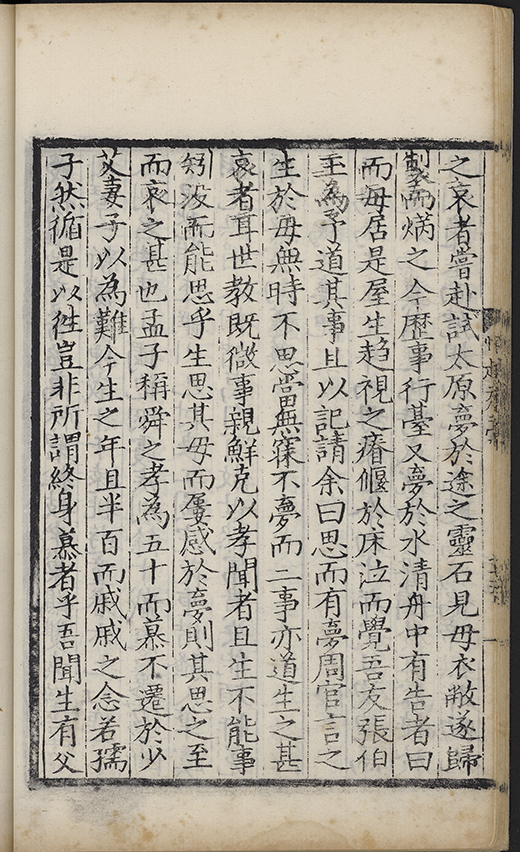 之哀者嘗赴試太原夢於途之靈石見母衣敝遂歸
製而焫之今歷事行臺又夢於水清舟中有告者曰
而母居是屋生趍視之瘠偃於床泣而覺吾友張伯
玉為予道其事且以記請余曰思而有夢周官言之
生於母無時不思當無寐不夢而二事亦道生之甚
哀者耳世教既微事親鮮克以孝聞者且生不能事
矧没而能思乎生思其母而屢感於夢則其思之至
而哀之甚也孟子稱舜之孝為五十而慕不遷於少
艾妻子以為難今生之年且半百而戚戚之念若孺
子然循是以徃豈非所謂終身慕者乎吾聞生有父